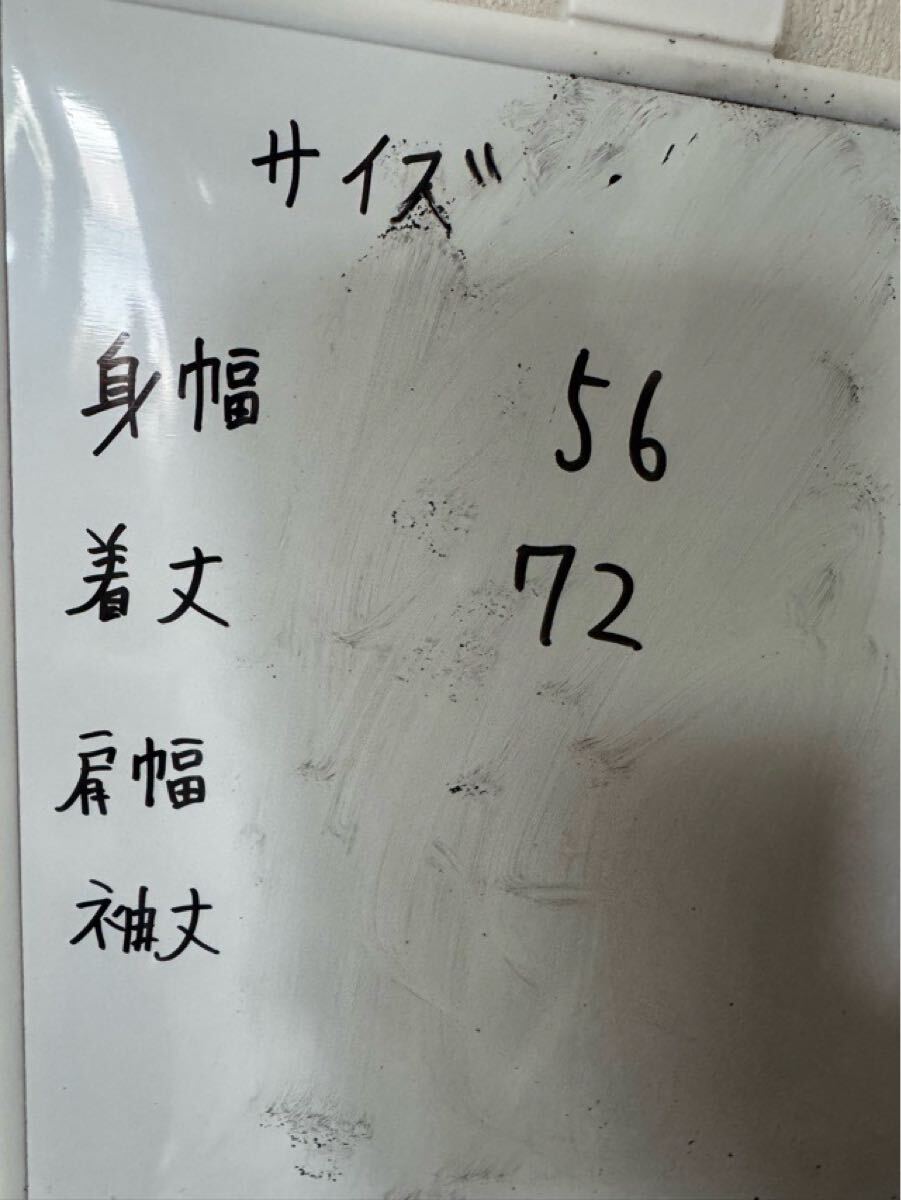 サイズ
身幅 56
着丈 72
肩幅
袖丈